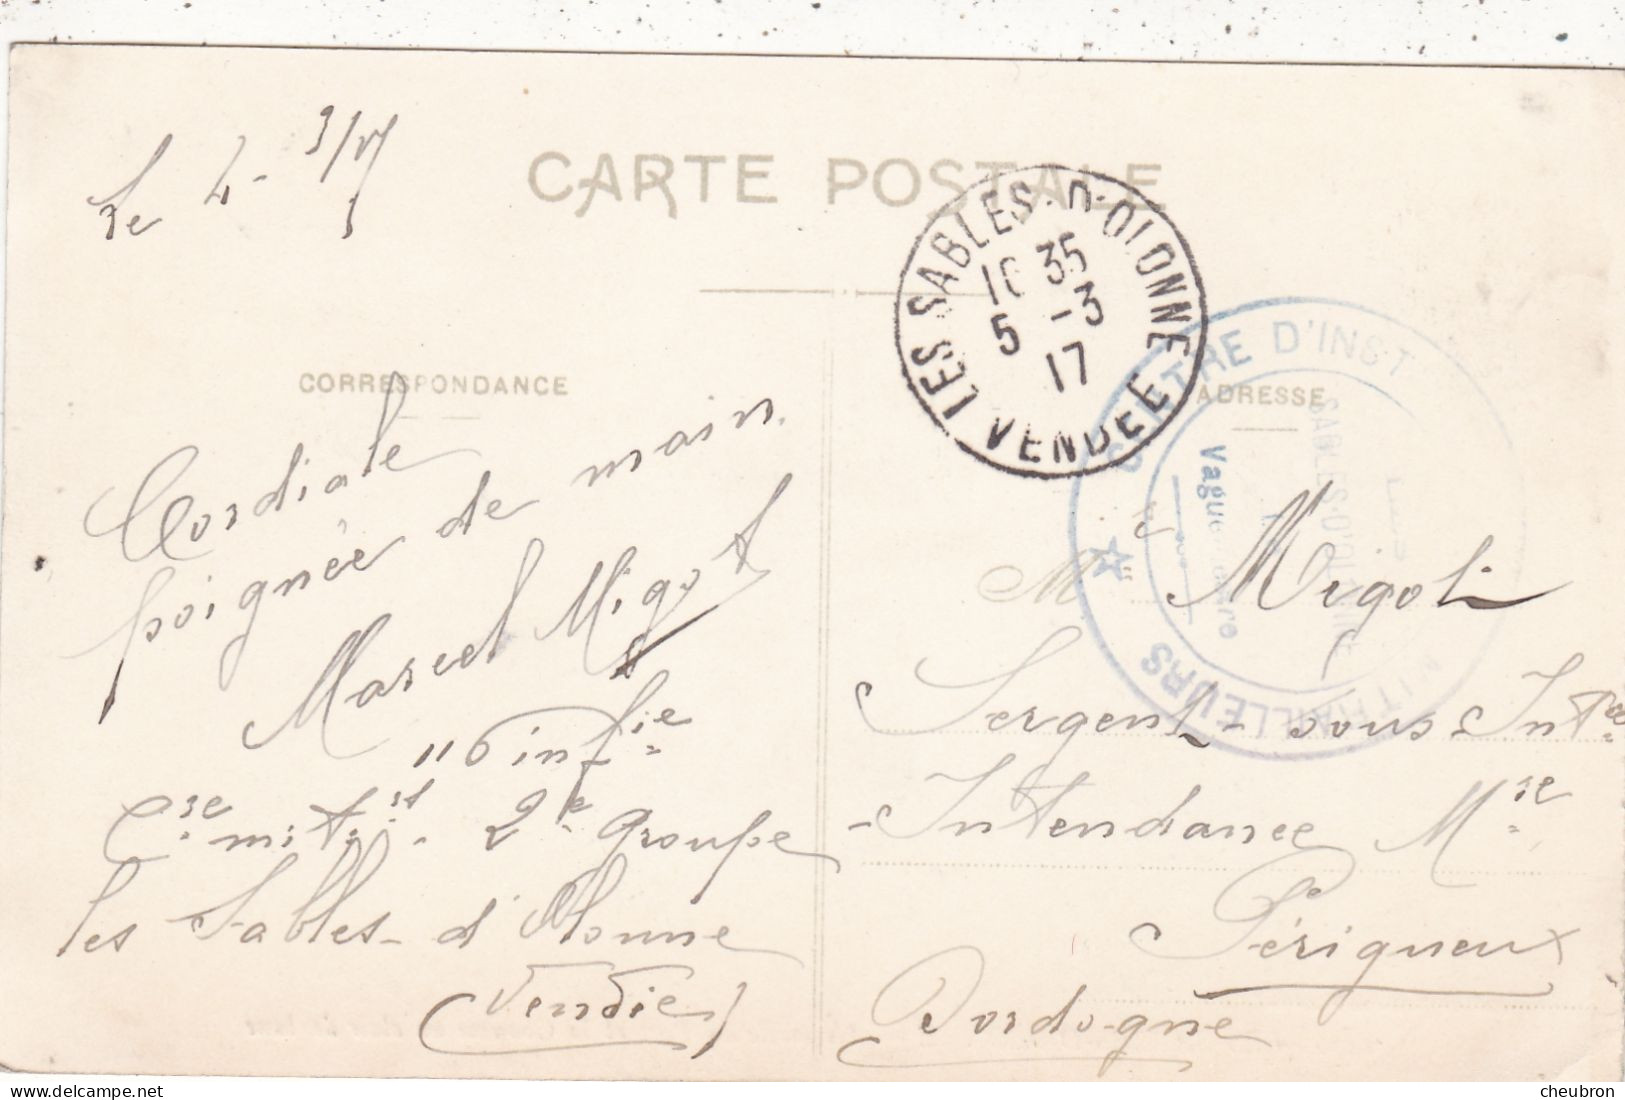 CARTE POSTALE
le 4-3/17
CORRESPONDANCE
Cordiale
poignée de main.
Marcel Migot
116 infie
Cie mit. 2e groupe
les Sables-d'Olonne
(Vendée)
LES SABLES-D'OLONNE
35
5 -3
17
VENDÉE
CENTRE D'INST
MITRAILLEURS
SABLES-D'OLONNE
ADRESSE
M Migot
Sergent-sous-Intce
-Intendance Mre
Périgueux
Dordogne
delcampe.net
cheubron